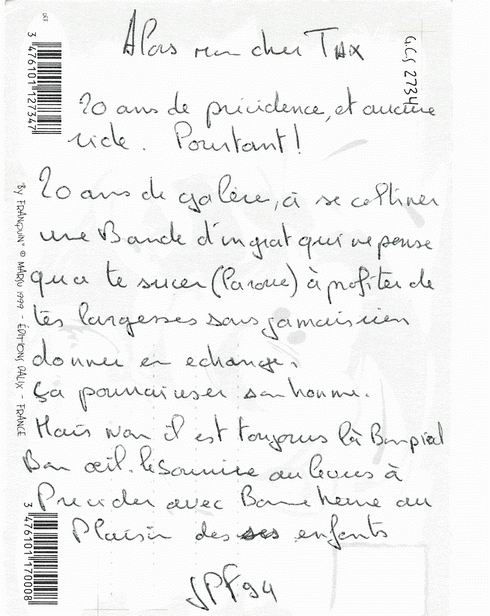 Alors mon cher TAX
GCS 2734
3 476101 127347
20 ans de présidence, et aucune
ride. Pourtant!
20 ans de galère, à se coltiner
une Bande d'ingrat qui ne pense
qu'a te sucer (la roue) à profiter de
tes largesses sans jamais rien
donner en echange.
Ça pourrai user son homme.
Mais non il est toujours là Bon pied
Bon œil. le Sourire au levres à
Presider avec Bonne heure au
Plaisir des ses enfants
JPF94
By FRANQUIN © MARSU 1999 - ÉDITIONS DALIX - FRANCE
3 476101 170008